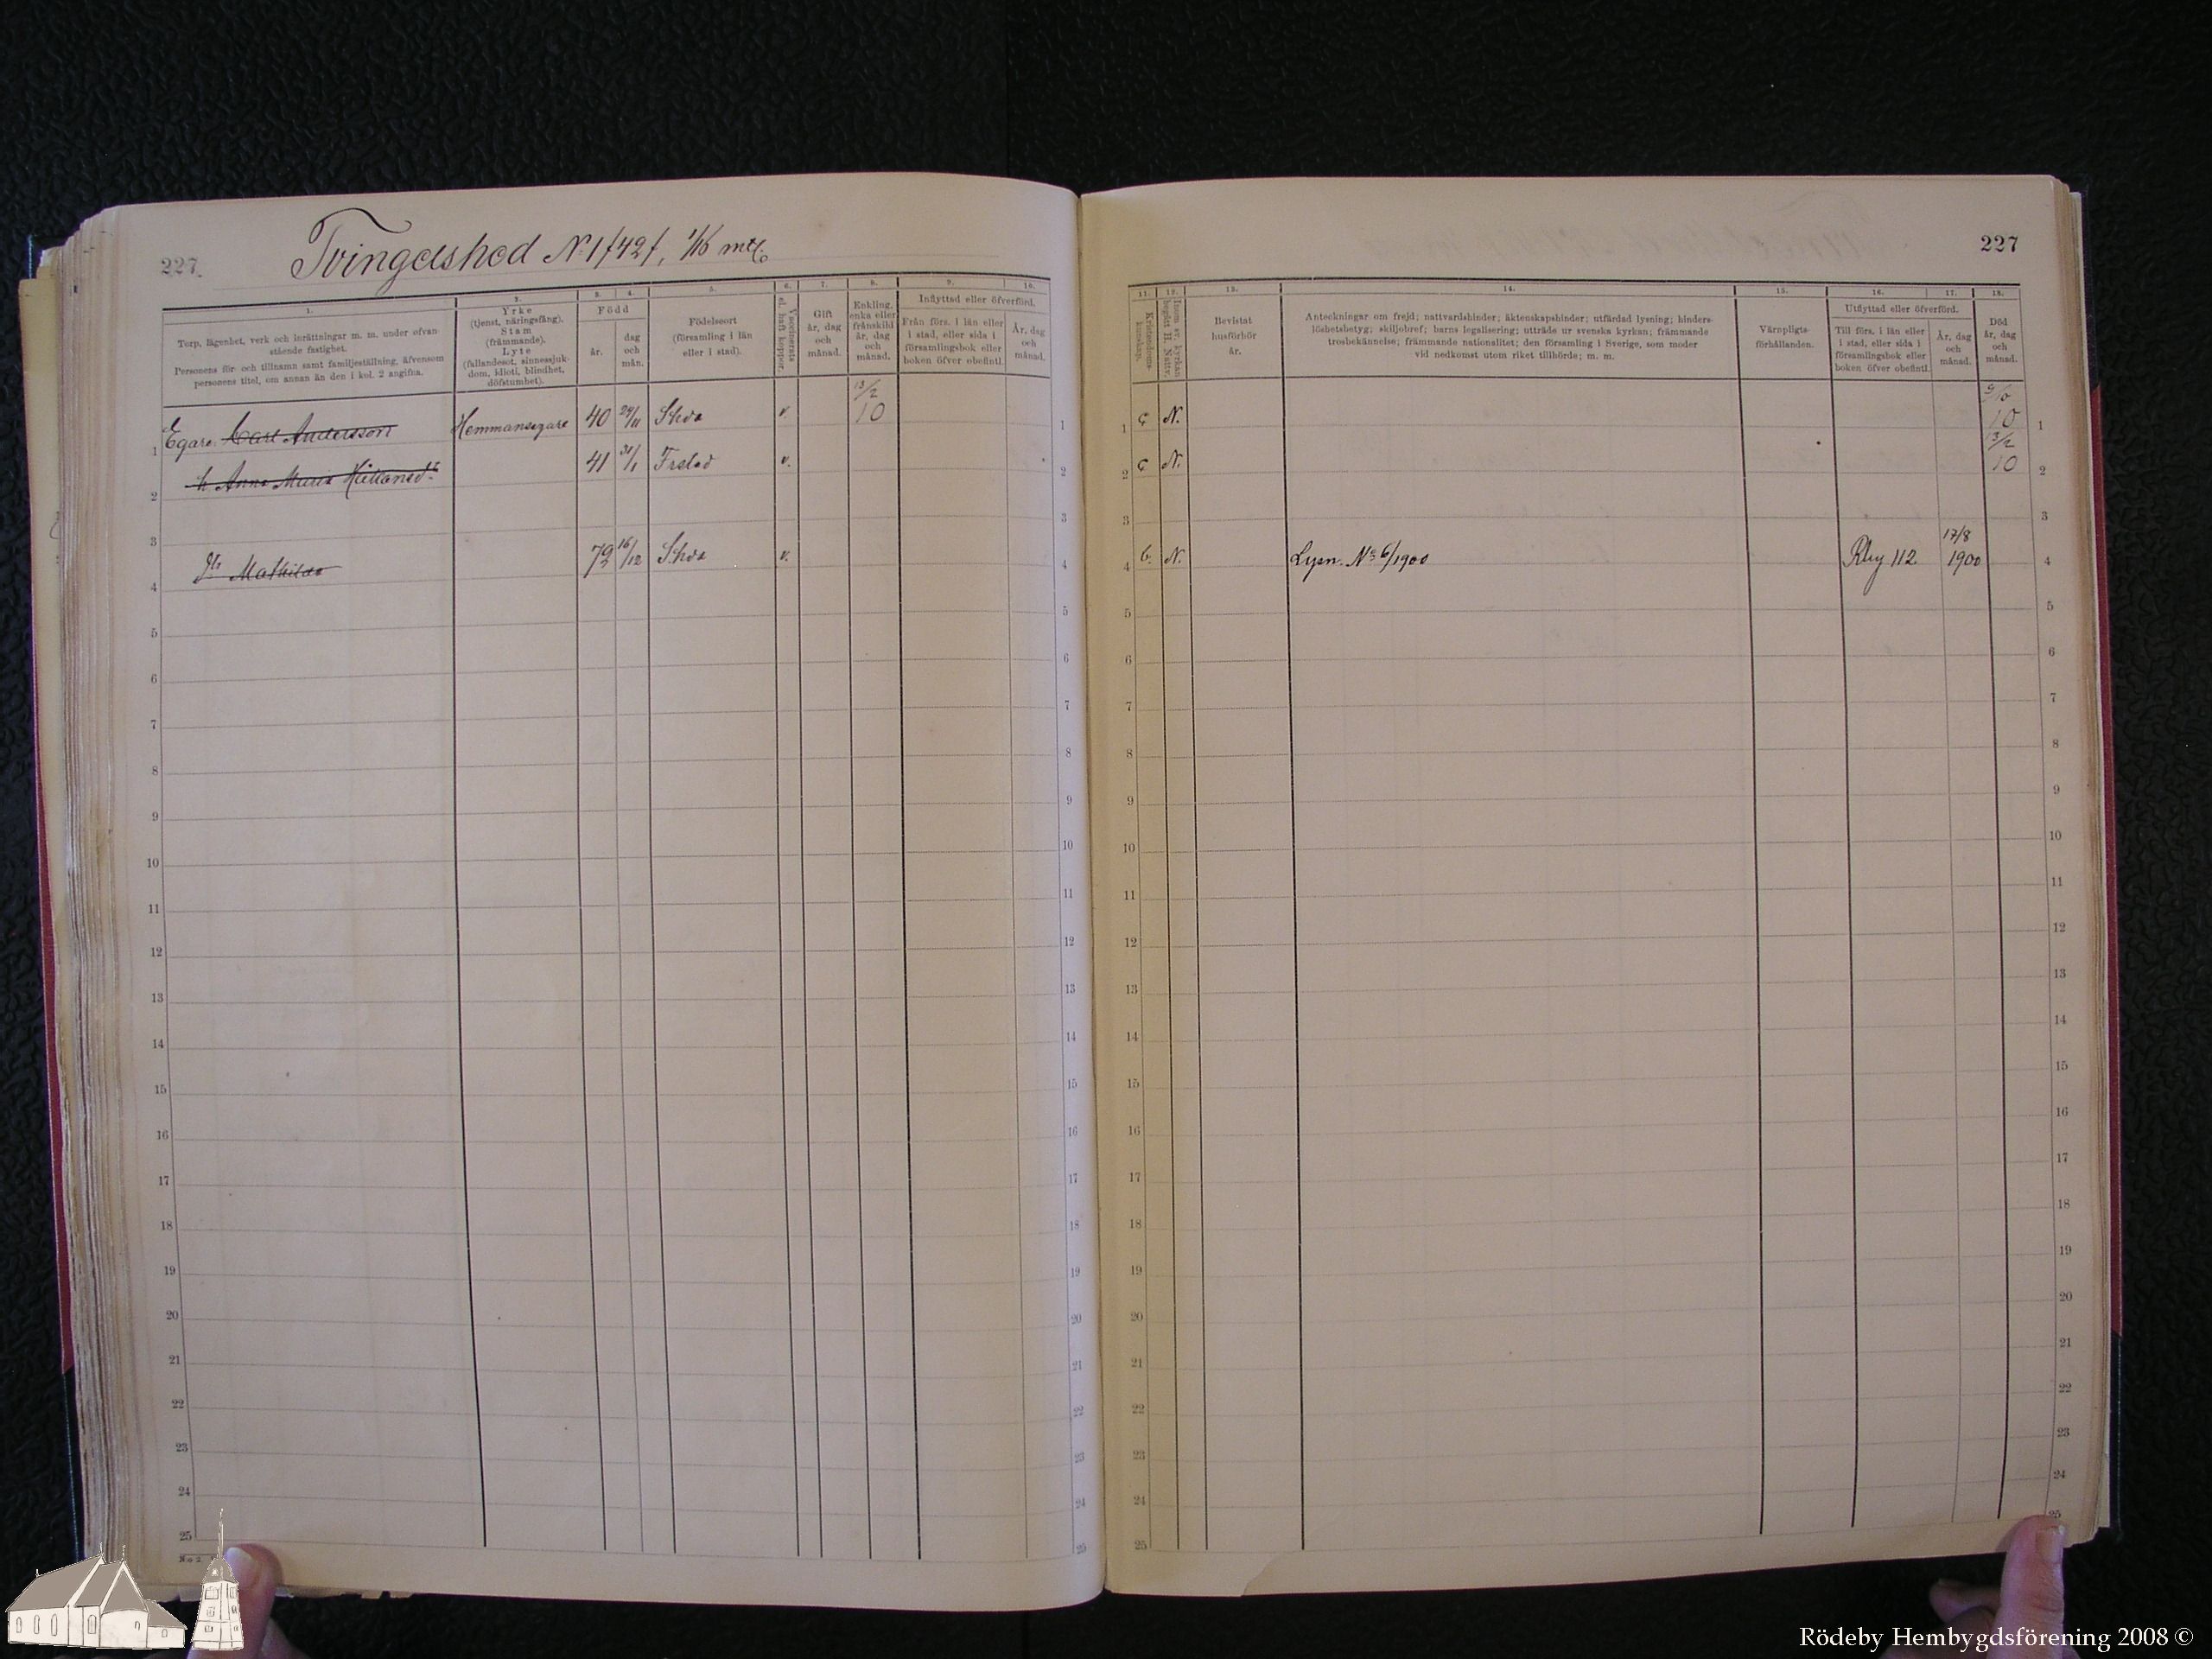 227.
Tvingelshed N:1 /42/, 1/16 mtl.
1. 2. 3. 4. 5. 6. 7. 8. 9. 10.
Torp, lägenhet, verk och inrättningar m. m. under ofvan-
stående fastighet.
Personens för- och tillnamn samt familjeställning, äfvensom
personens titel, om annan än den i kol. 2 angifna.
Yrke
(tjenst, näringsfång).
Stam
(främmande).
Lyte
(fallandesot, sinnessjuk-
dom, idioti, blindhet,
döfstumhet).
Född
år.
dag
och
mån.
Födelseort
(församling i län
eller i stad).
Vaccinerats
el. haft koppor.
Gift
år, dag
och
månad.
Enkling,
enka eller
frånskild
år, dag
och
månad.
Inflyttad eller öfverförd.
Från förs. i län eller
i stad, eller sida i
församlingsbok eller
boken öfver obefintl.
År, dag
och
månad.
13/2
1 Egare Carl Andersson Hemmansegare 40 29/11 Shda v. 10 1
2 h. Anna Maria 41 31/1 Frstad v. 2
3 3
4 Mathilda 72 16/12 Shda v. 4
5 5
6 6
7 7
8 8
9 9
10 10
11 11
12 12
13 13
14 14
15 15
16 16
17 17
18 18
19 19
20 20
21 21
22 22
23 23
24 24
25 25
No 2
227
11. 12. 13. 14. 15. 16. 17. 18.
Kristendoms-
kunskap.
Inom sv. kyrkan
begått H. Nattv.
Bevistat
husförhör
år.
Anteckningar om frejd; nattvardshinder; äktenskapshinder; utfärdad lysning; hinders-
löshetsbetyg; skiljobref; barns legalisering; utträde ur svenska kyrkan; främmande
trosbekännelse; främmande nationalitet; den församling i Sverige, som moder
vid nedkomst utom riket tillhörde; m. m.
Värnpligts-
förhållanden.
Utflyttad eller öfverförd.
Till förs. i län eller
i stad, eller sida i
församlingsbok eller
boken öfver obefintl.
År, dag
och
månad.
Död
år, dag
och
månad.
1 N. 10 1
13/2
2 N. 10 2
3 3
17/8
4 b. N. Lysn. No 6/1900 Rby 112 1900 4
5 5
6 6
7 7
8 8
9 9
10 10
11 11
12 12
13 13
14 14
15 15
16 16
17 17
18 18
19 19
20 20
21 21
22 22
23 23
24 24
25 25
Rödeby Hembygdsförening 2008 ©